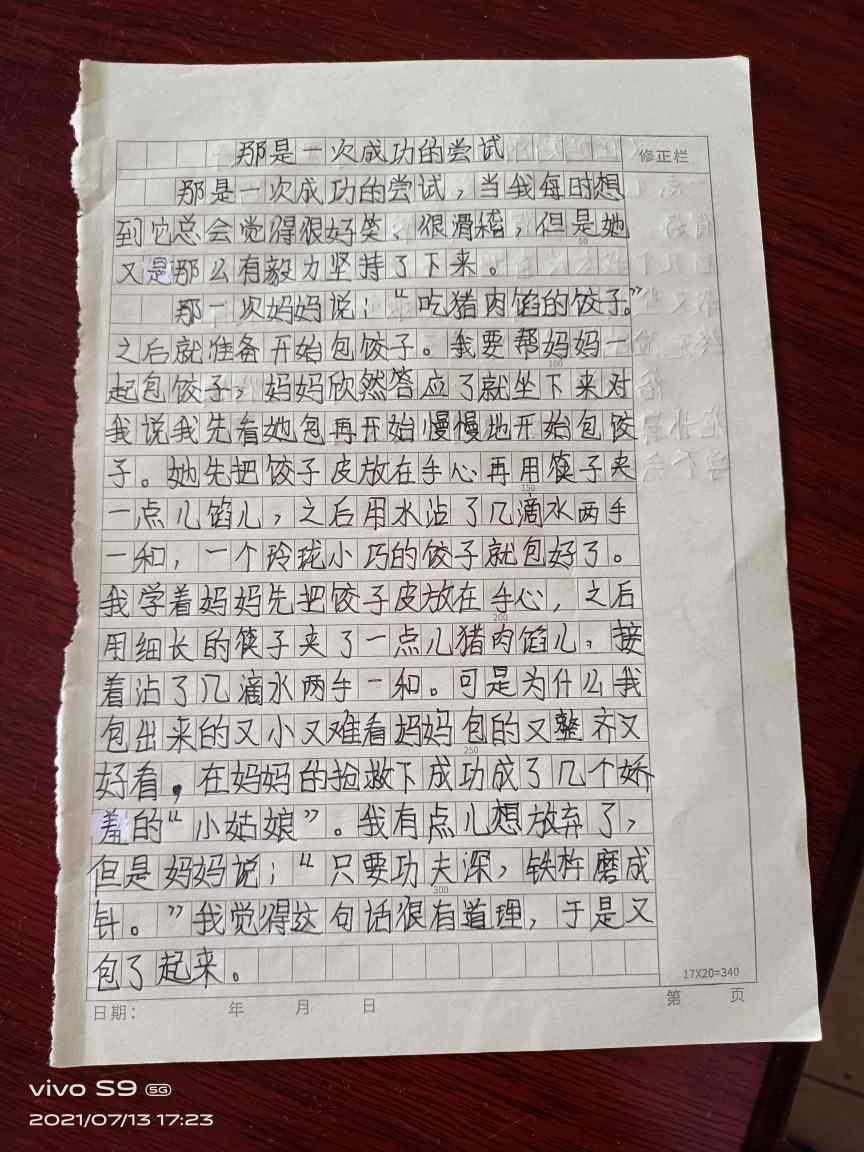 那是一次成功的尝试
修正栏
那是一次成功的尝试，当我每时想
到它总会觉得很好笑、很滑稽，但是她
50
又是那么有毅力坚持了下来。
那一次妈妈说：“吃猪肉馅的饺子。”
之后就准备开始包饺子。我要帮妈妈一
100
起包饺子，妈妈欣然答应了就坐下来对
我说我先看她包再开始慢慢地开始包饺
子。她先把饺子皮放在手心再用筷子夹
150
一点儿馅儿，之后用水沾了几滴水两手
一和，一个玲珑小巧的饺子就包好了。
我学着妈妈先把饺子皮放在手心，之后
200
用细长的筷子夹了一点儿猪肉馅儿，接
着沾了几滴水两手一和。可是为什么我
包出来的又小又难看妈妈包的又整齐又
250
好看，在妈妈的抢救下成功成了几个娇
羞的“小姑娘”。我有点儿想放弃了，
但是妈妈说：“只要功夫深，铁杵磨成
300
针。”我觉得这句话很有道理，于是又
包了起来。
17X20=340
日期： 年 月 日 第 页
vivo S9 5G
2021/07/13 17:23